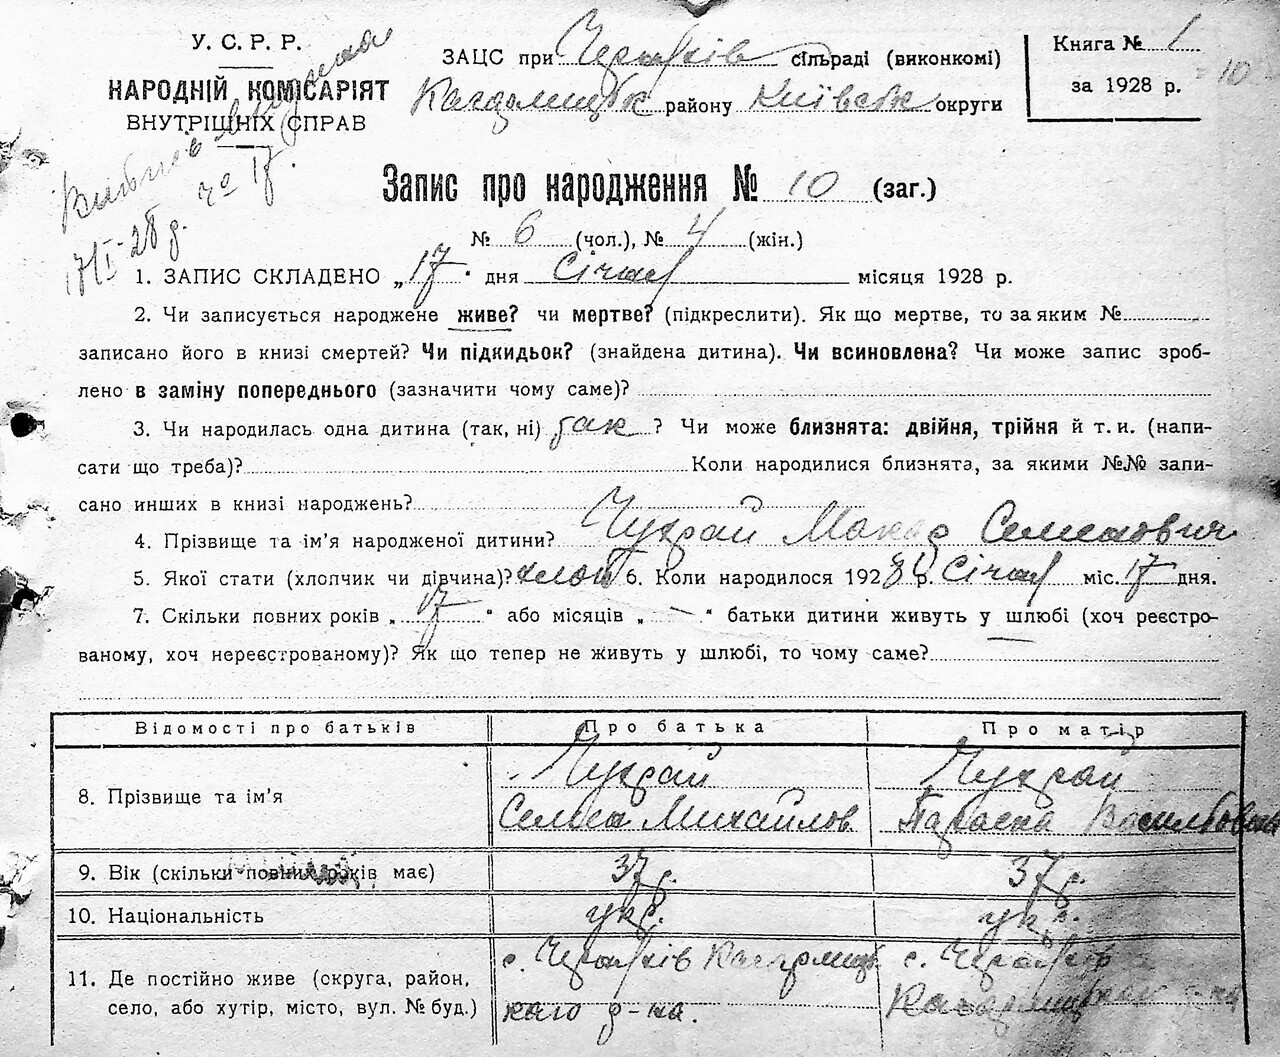 У. С. Р. Р.
НАРОДНІЙ КОМІСАРІЯТ
ВНУТРІШНІХ СПРАВ
ЗАЦС при Черняхів сільраді (виконкомі)
Кагарлицьк району Київськ округи
Книга № 1
за 1928 р.
10
17/I-28 р. № 17
Запис про народження № 10 (заг.)
№ 6 (чол.), № 4 (жін.)
1. ЗАПИС СКЛАДЕНО „17" дня Січня місяця 1928 р.
2. Чи записується народжене живе? чи мертве? (підкреслити). Як що мертве, то за яким №
записано його в книзі смертей? Чи підкидьок? (знайдена дитина). Чи всиновлена? Чи може запис зроб-
лено в заміну попереднього (зазначити чому саме)?
3. Чи народилась одна дитина (так, ні) так? Чи може близнята: двійня, трійня й т. и. (напи-
сати що треба)? Коли народилися близнята, за якими №№ запи-
сано инших в книзі народжень?
4. Прізвище та ім’я народженої дитини? Чухрай Макар Семенович
5. Якої стати (хлопчик чи дівчина)? хлоп 6. Коли народилося 1928 р. Січня міс. 17 дня.
7. Скільки повних років „17" або місяців „—" батьки дитини живуть у шлюбі (хоч реєстро-
ваному, хоч нереєстрованому)? Як що тепер не живуть у шлюбі, то чому саме?
Відомості про батьків Про батька Про матір
8. Прізвище та ім’я Чухрай Семен Михайлов Чухрай Параска Васильовна
9. Вік (скільки повних років має) 37 р. 37 р.
10. Національність укр. укр.
11. Де постійно живе (округа, район, с. Черняхів Кагарлиць с. Черняхів
село, або хутір, місто, вул. № буд.) кого р-на. Кагарлицького р-на